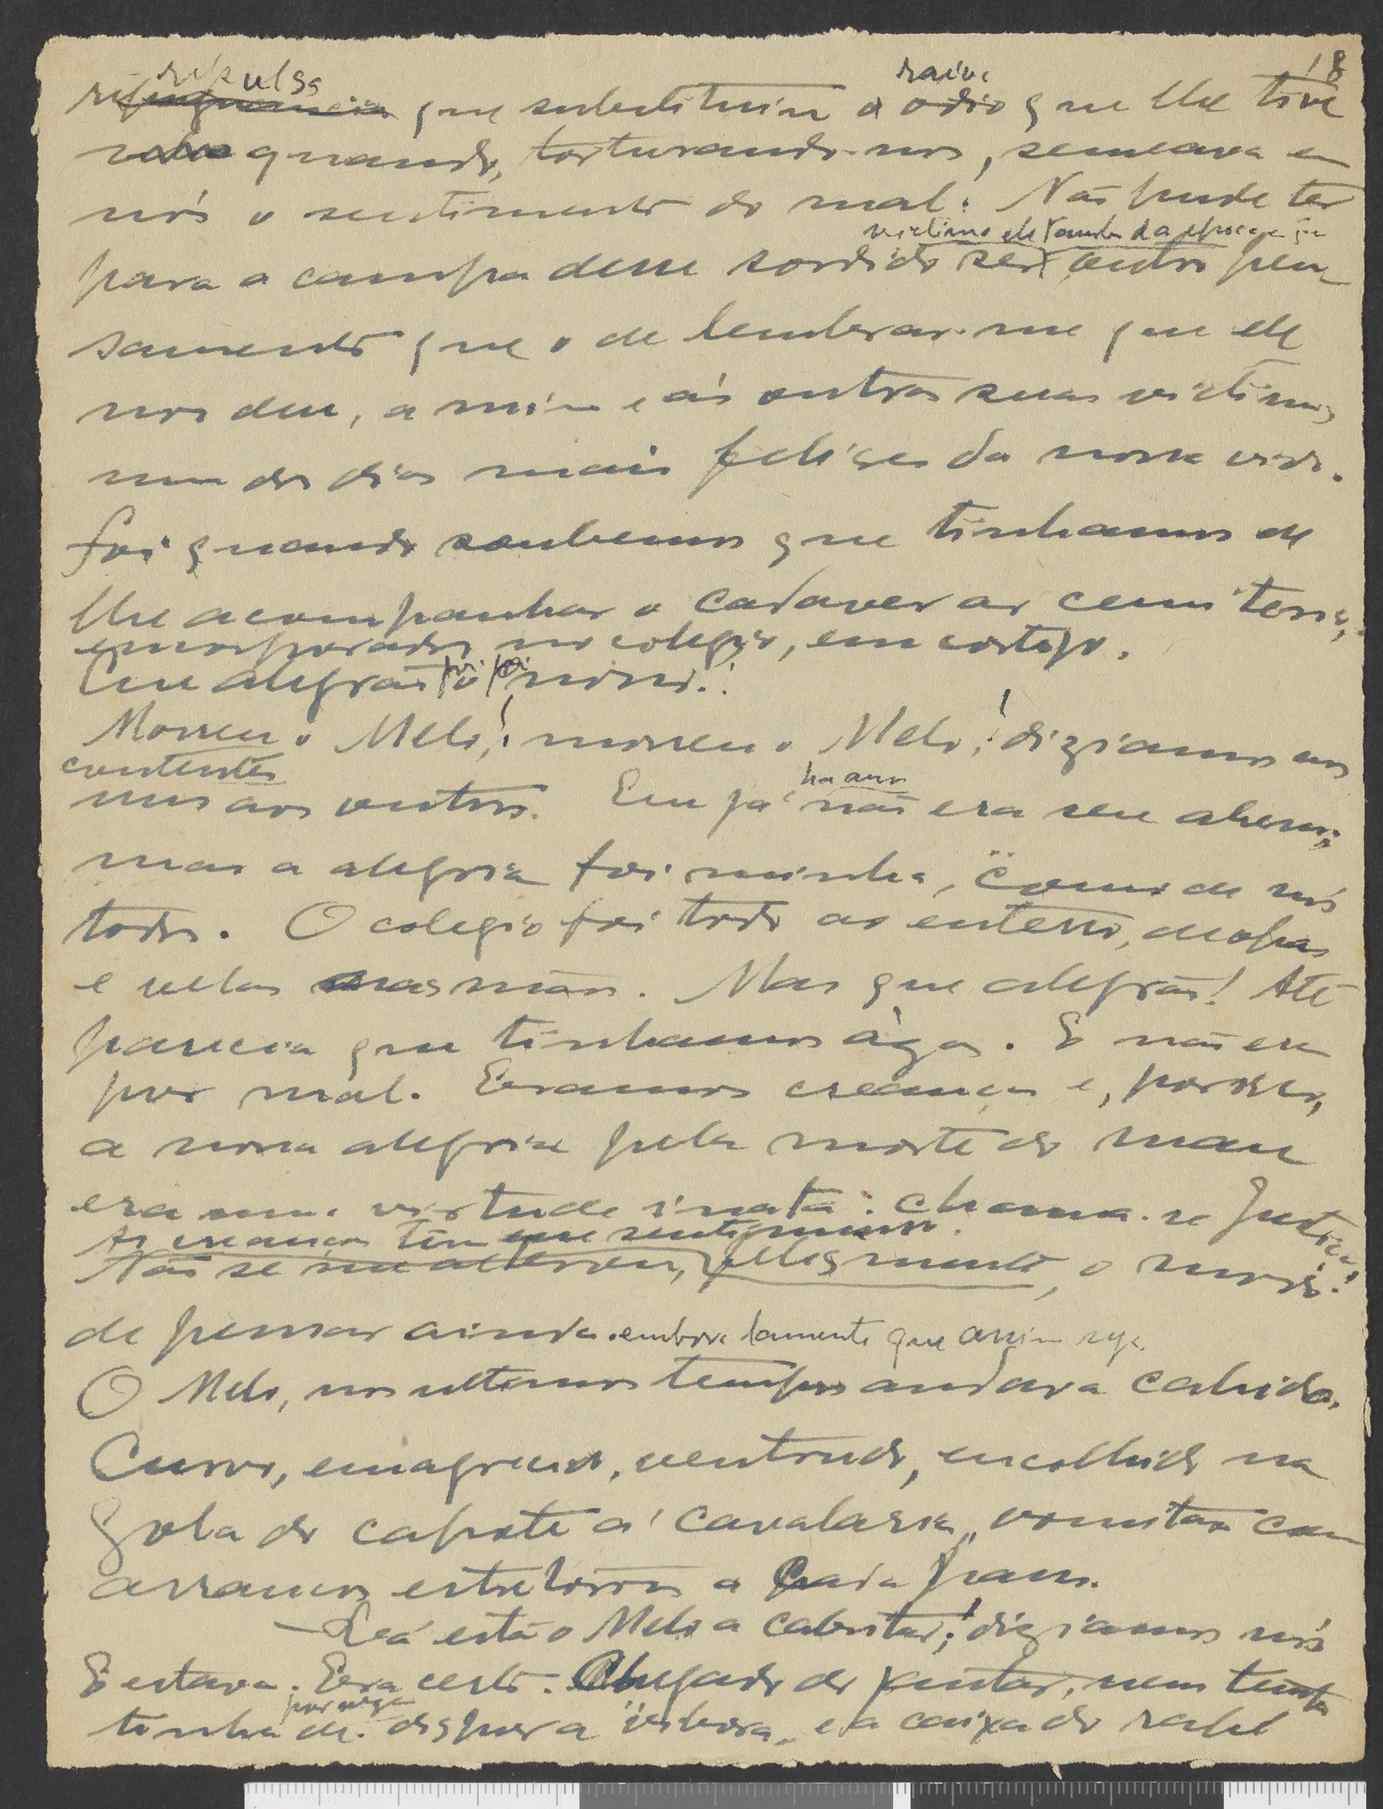 18
repulsa raiva
repugnancia que substituiu o odio que lhe tive
quando, torturando-nos, semeava em
nós o sentimento do mal. Não pude ter
victima da epoca
para a campa desse sordido ser outro pen-
samento que o de lembrar-me que ele
nos deu, a mim e ás outras suas victimas
um dos dias mais felizes da nossa vida.
Foi quando soubemos que tinhamos de
lhe acompanhar o cadaver ao cemiterio,
emcorporados no colegio, em cortejo.
Que alegrão foi o nosso!
Morreu o Melo! morreu o Melo! diziamos nos
contentes
uns aos outros. Eu já ha anos não era seu aluno;
mas a alegria foi minha, como de nós
todos. O colegio foi todo ao enterro, de opas
e velas nas mãos. Mas que alegrão! Até
parecia que tinhamos azas. E não era
por mal. Eramos creanças e, por isso,
a nossa alegria pela morte do mau
era uma virtude inata: chama-se Justiça!
As creanças têm esse sentimento.
Não se me alterou, felizmente, o modo
de pensar ainda. embora lamente que assim seja
O Melo, nos ultimos tempos andava cahido.
Curvo, emagrecido, ventrudo, encolhido na
gola do capote á cavalaria, vomitava com
arrancos estretorosos a cada passo.
— Lá está o Melo a cabritar! diziamos nós
E estava. Era certo. Chegado do jantar, nem tempo
tinha de depor a vibora, e a caixa do rapé